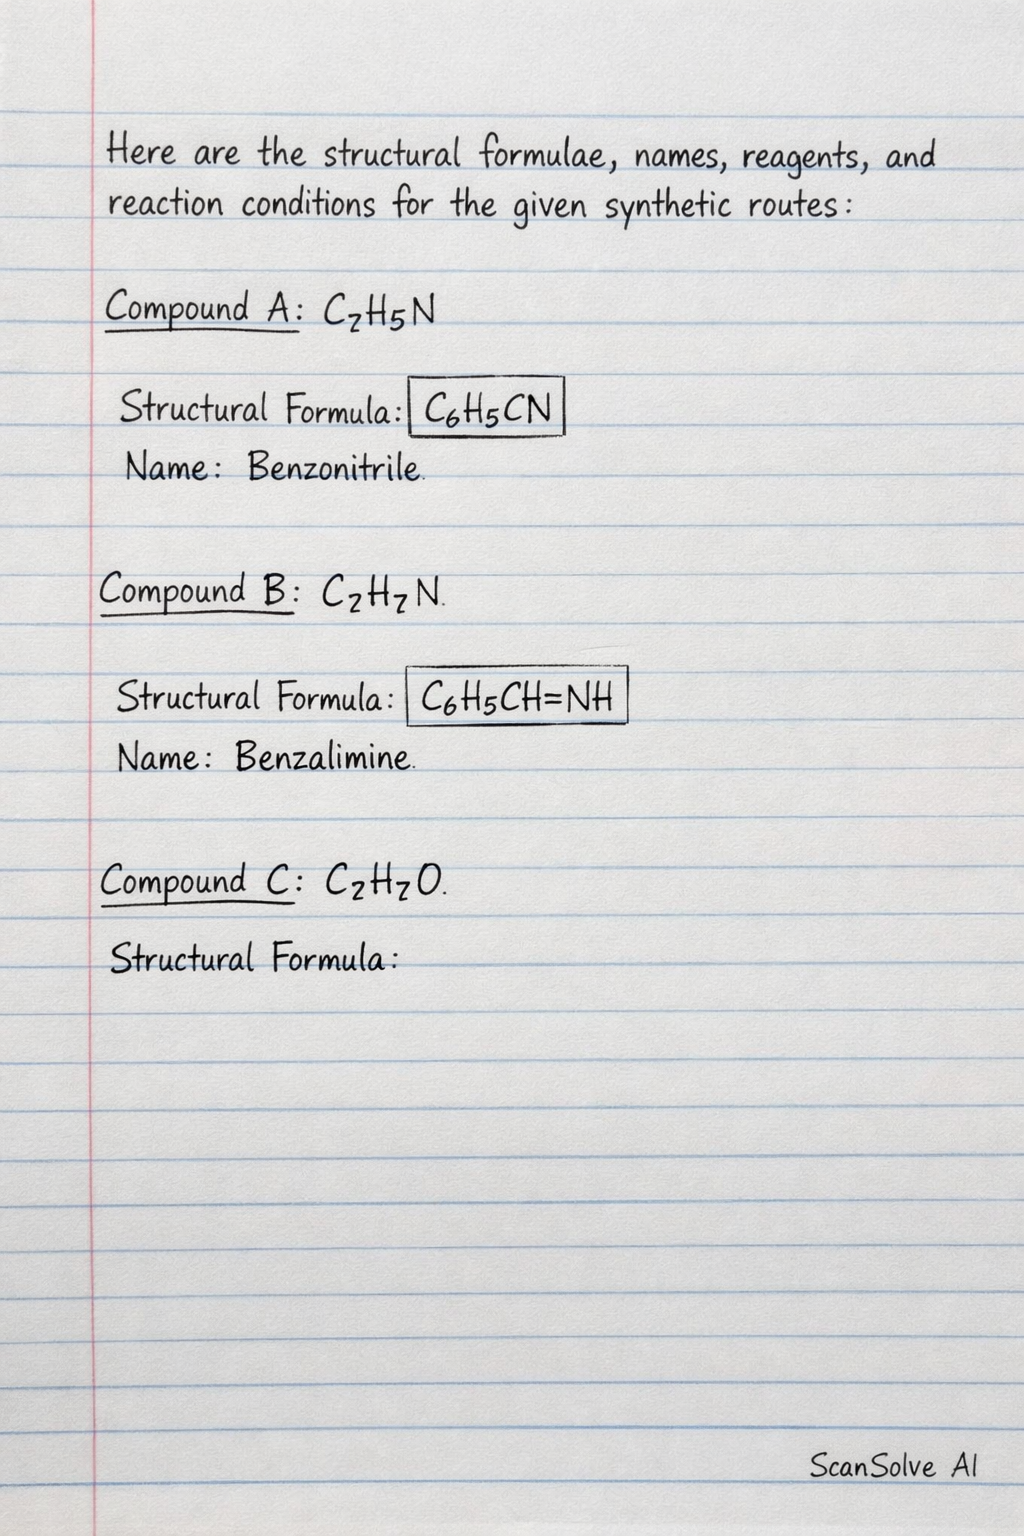 Here are the structural formulae, names, reagents, and
reaction conditions for the given synthetic routes:
Compound A: C₂H₅N
Structural Formula: C₆H₅CN
Name: Benzonitrile.
Compound B: C₂H₇N.
Structural Formula: C₆H₅CH=NH
Name: Benzalimine.
Compound C: C₂H₇O.
Structural Formula:
ScanSolve AI